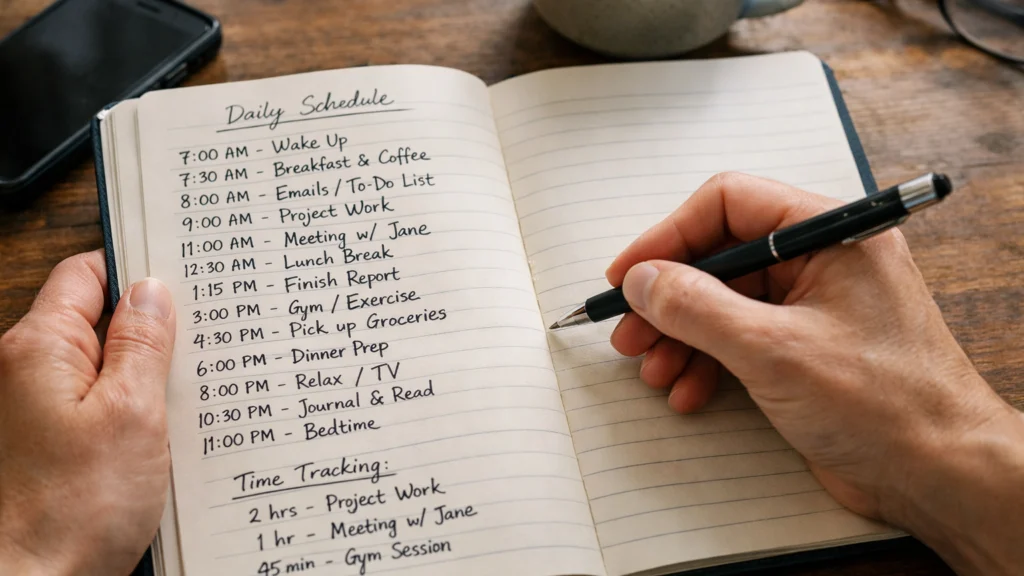 Daily Schedule
7:00 AM - Wake Up
7:30 AM - Breakfast & Coffee
8:00 AM - Emails / To-Do List
9:00 AM - Project Work
11:00 AM - Meeting w/ Jane
12:30 AM - Lunch Break
1:15 PM - Finish Report
3:00 PM - Gym / Exercise
4:30 PM - Pick up Groceries
6:00 PM - Dinner Prep
8:00 PM - Relax / TV
10:30 PM - Journal & Read
11:00 PM - Bedtime
Time Tracking:
2 hrs - Project Work
1 hr - Meeting w/ Jane
45 min - Gym Session